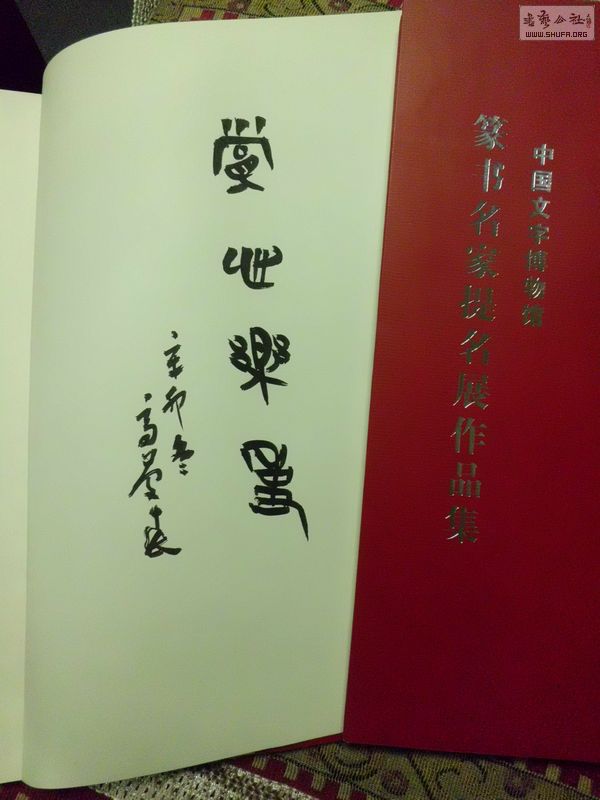 书艺公社
WWW.SHUFA.ORG
中国文字博物馆
篆书名家提名展作品集
樂
辛卯冬
高